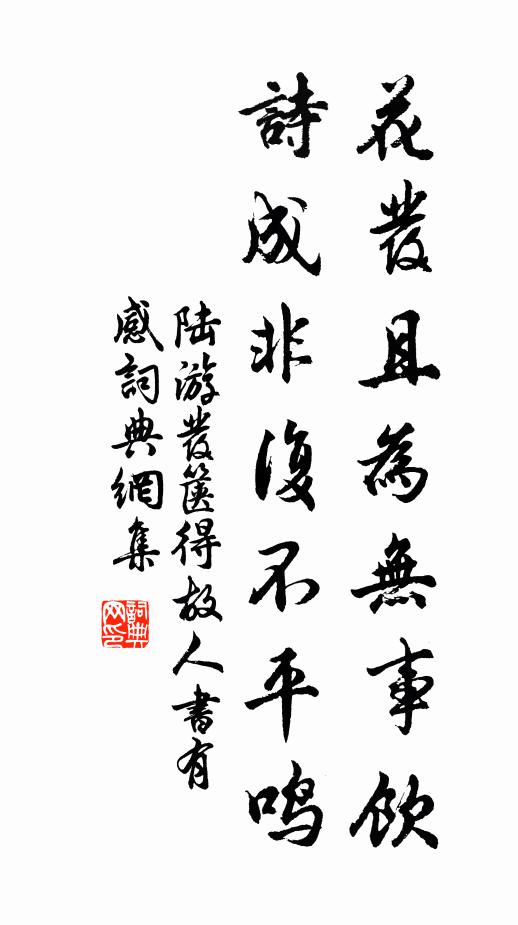 花發且為無事飲
詩成非復不平鳴
陆游發篋得故人書有
感詞典網集
詞典
网印